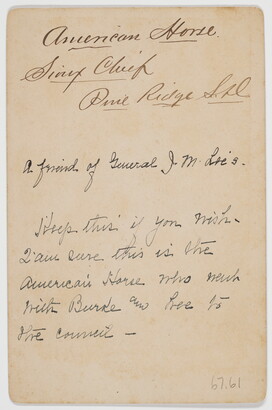 American Horse.
Sioux Chief
Pine Ridge S.D
A friend of General J. M. Lee's.
Keep this if you wish -
I am sure this is the
American Horse who went
with Burke and Lee to
the council -
67.61